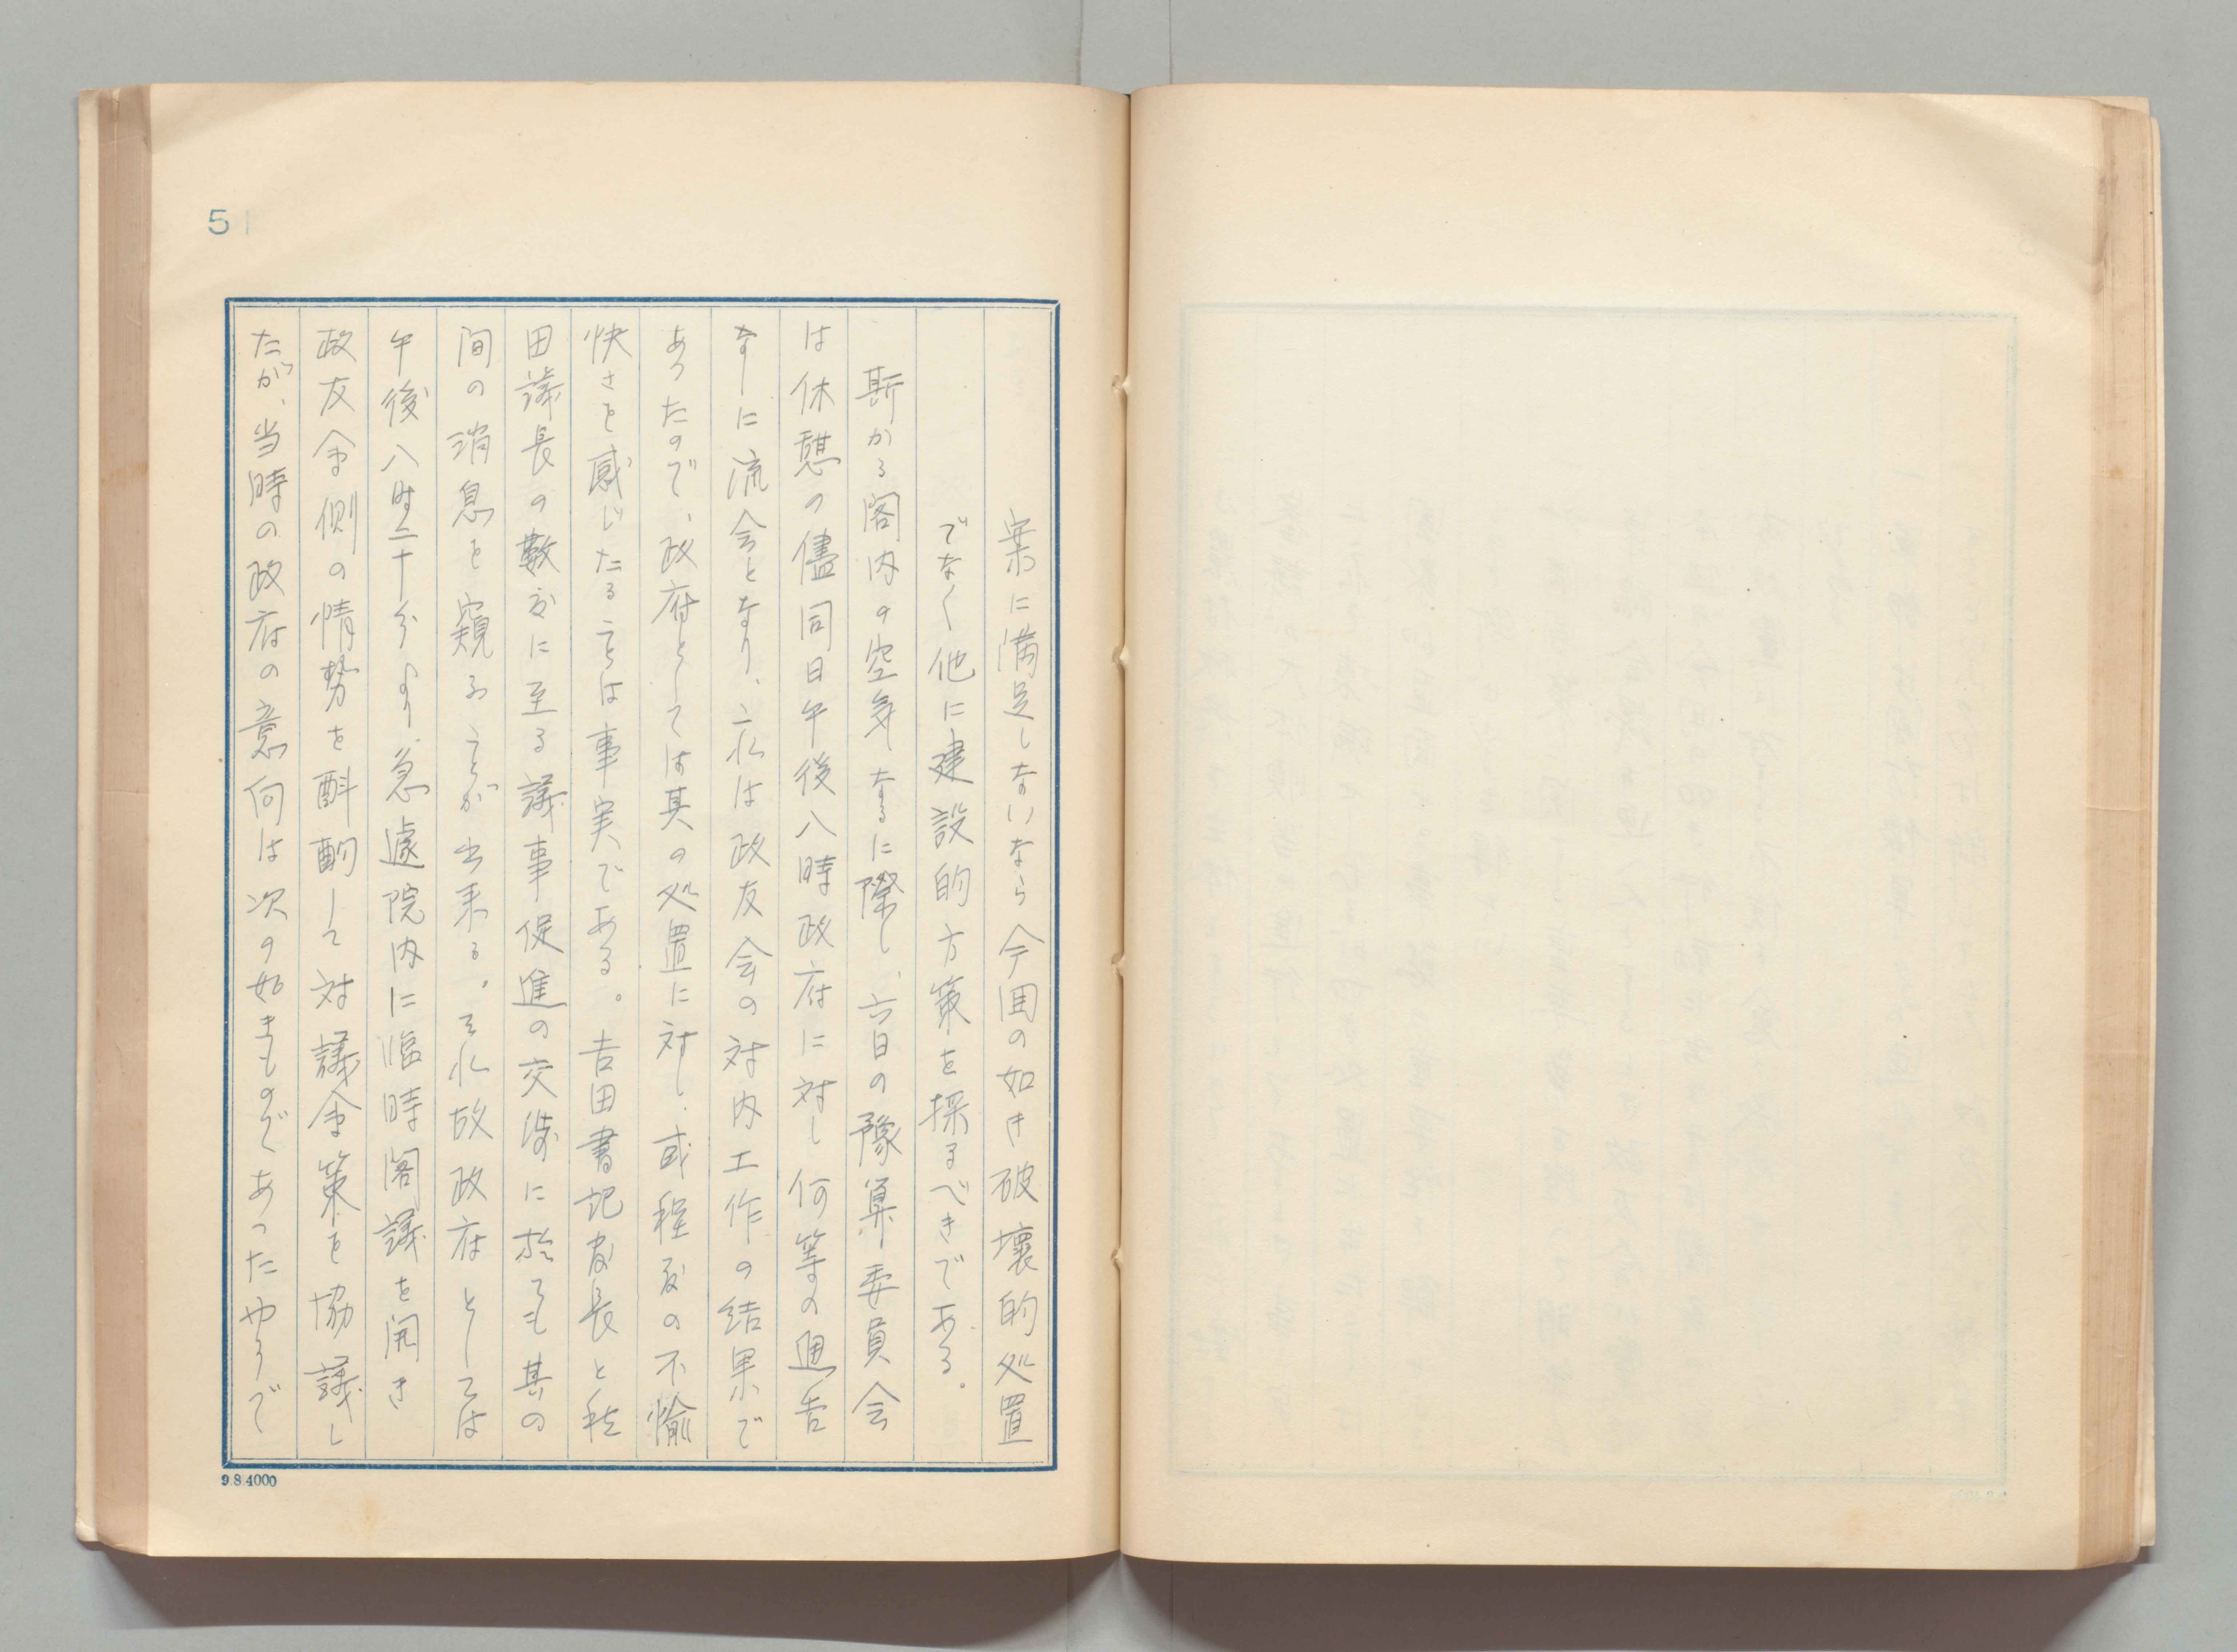 51
案に満足しないなら今囬の如き破壊的処置
でなく他に建設的方策を採るべきである。
斯かる閣内の空気なるに際し、六日の豫算委員会
は休憩の儘同日午後八時政府に対し何等の通告
なしに流会となり、之れは政友会の対内工作の結果で
あつたので、政府としては其の処置に対し、或程度の不愉
快さを感じたることは事実である。吉田書記官長と秋
田議長の数度に至る議事促進の交渉に於ても其の
間の消息を窺ふことが出来る。それ故政府としては
午後八時二十分より急遽院内に臨時閣議を開き
政友会側の情勢を斟酌して対議会策を協議し
たが、当時の政府の意向は次の如きものであつたやうで
9.8.4000